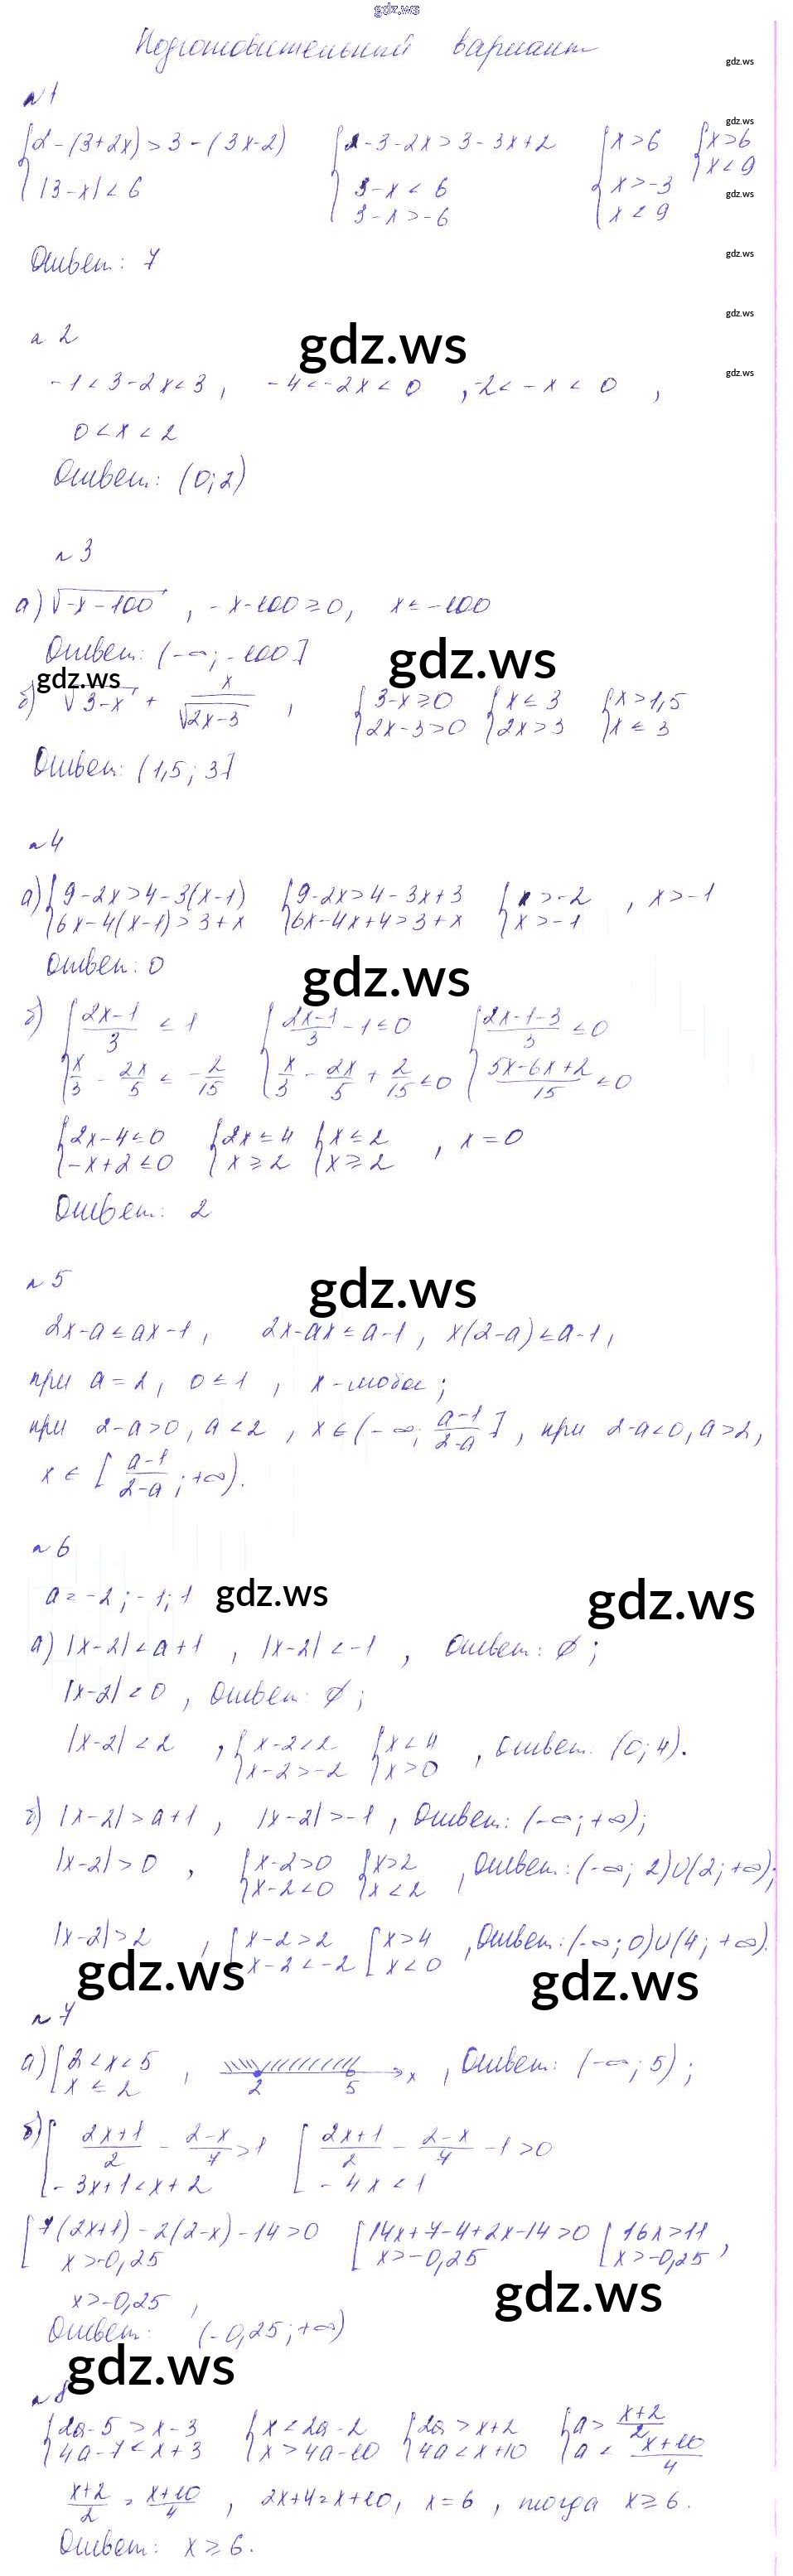 gdz.ws
Подготовительный вариант
gdz.ws
№1
gdz.ws
{2-(3+2x)>3-(3x-2) {2-3-2x>3-3x+2 {x>6 {x>6
|3-x|<6 3-x<6 x>-3 x<9
gdz.ws
3-x>-6 x<9
Ответ: 7
gdz.ws
gdz.ws
№2
gdz.ws
gdz.ws
-1<3-2x<3, -4<-2x<0, -2<-x<0,
0<x<2
Ответ: (0;2)
№3
а) √-x-100, -x-100≥0, x≤-100
Ответ: (-∞; -100]
gdz.ws
gdz.ws
б) √3-x + x/√2x-3, {3-x≥0 {x≤3 {x>1,5
2x-3>0 2x>3 x≤3
Ответ: (1,5; 3]
№4
а) {9-2x>4-3(x-1) {9-2x>4-3x+3 {x>-2, x>-1
6x-4(x-1)>3+x 6x-4x+4>3+x x>-1
Ответ: 0
gdz.ws
б) {2x-1/3 ≤ 1 {2x-1/3 -1≤0 {2x-1-3/3 ≤0
x/3 - 2x/5 ≤ -2/15 x/3 - 2x/5 + 2/15 ≤0 5x-6x+2/15 ≤0
{2x-4≤0 {2x≤4 {x≤2, x=0
-x+2≤0 x≥2 x≥2
Ответ: 2
№5
gdz.ws
2x-a≤ax-1, 2x-ax≤a-1, x(2-a)≤a-1,
при a=2, 0≤1, x-любое;
при 2-a>0, a<2, x∈(-∞; a-1/2-a], при 2-a<0, a>2,
x∈[a-1/2-a; +∞).
№6
a=-2; -1; 1
gdz.ws
gdz.ws
а) |x-2|<a+1, |x-2|<-1, Ответ: ∅;
|x-2|<0, Ответ: ∅;
|x-2|<2, {x-2<2 {x<4, Ответ: (0;4).
x-2>-2 x>0
б) |x-2|>a+1, |x-2|>-1, Ответ: (-∞;+∞);
|x-2|>0, [x-2>0 [x>2, Ответ: (-∞; 2)∪(2; +∞);
x-2<0 x<2
|x-2|>2, [x-2>2 [x>4, Ответ: (-∞;0)∪(4; +∞).
x-2<-2 x<0
gdz.ws
gdz.ws
№7
а) [2<x<5, 2 5 x, Ответ: (-∞; 5);
x≤2
б) [2x+1/2 - 2-x/7 >1 [2x+1/2 - 2-x/7 -1>0
-3x+1<x+2 -4x<1
[7(2x+1)-2(2-x)-14>0 [14x+7-4+2x-14>0 [16x>11,
x>-0,25 x>-0,25 x>-0,25
x>-0,25,
gdz.ws
Ответ: (-0,25; +∞)
gdz.ws
№8
{2a-5>x-3 {x<2a-2 {2a>x+2 {a> x+2/2
4a-7<x+3 x>4a-10 4a<x+10 a< x+10/4
x+2/2 = x+10/4, 2x+4=x+10, x=6, тогда x≥6.
Ответ: x≥6.